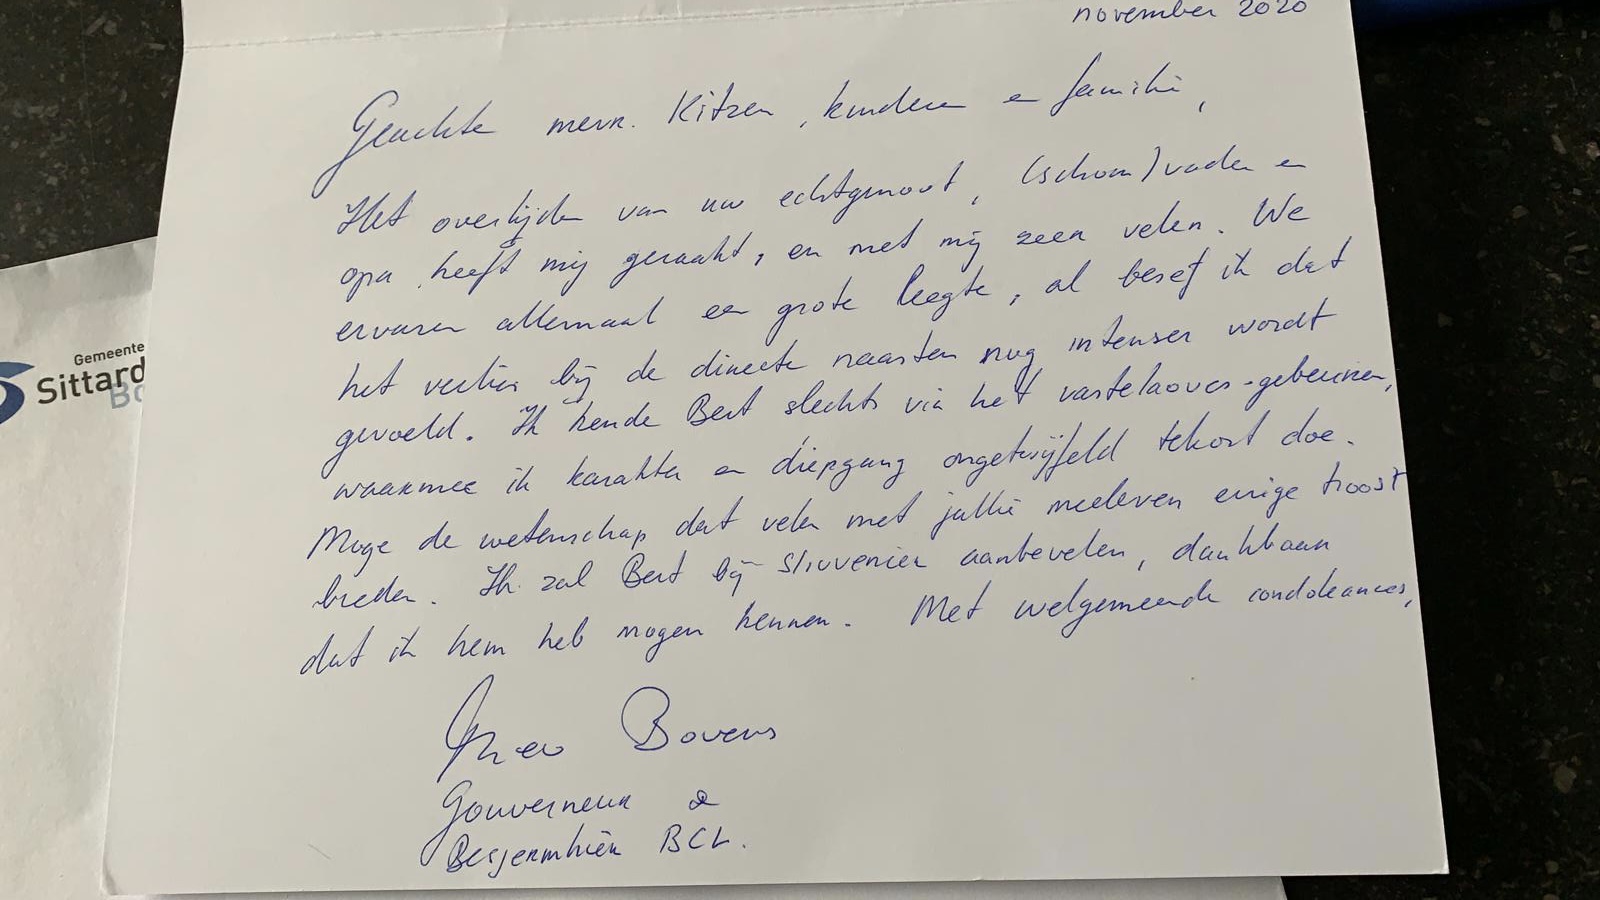 november 2020
Geachte mevr. Kitzen, kinderen en familie,
Het overlijden van uw echtgenoot, (schoon)vader en
opa, heeft mij geraakt, en met mij zeer velen. We
ervaren allemaal een grote leegte, al besef ik dat
het verlies bij de directe naasten nog intenser wordt
gevoeld. Ik kende Bert slechts via het vastelaoves-gebeuren,
waarmee ik karakter en diepgang ongetwijfeld tekort doe.
Moge de wetenschap dat velen met jullie meeleven enige troost
bieden. Ik zal Bert bij Sluvenier aanbevelen, dankbaar
dat ik hem heb mogen kennen. Met welgemeende condoleances,
Theo Bovens
Gouverneur &
Besjermhièr BCL.
Gemeente
Sittard